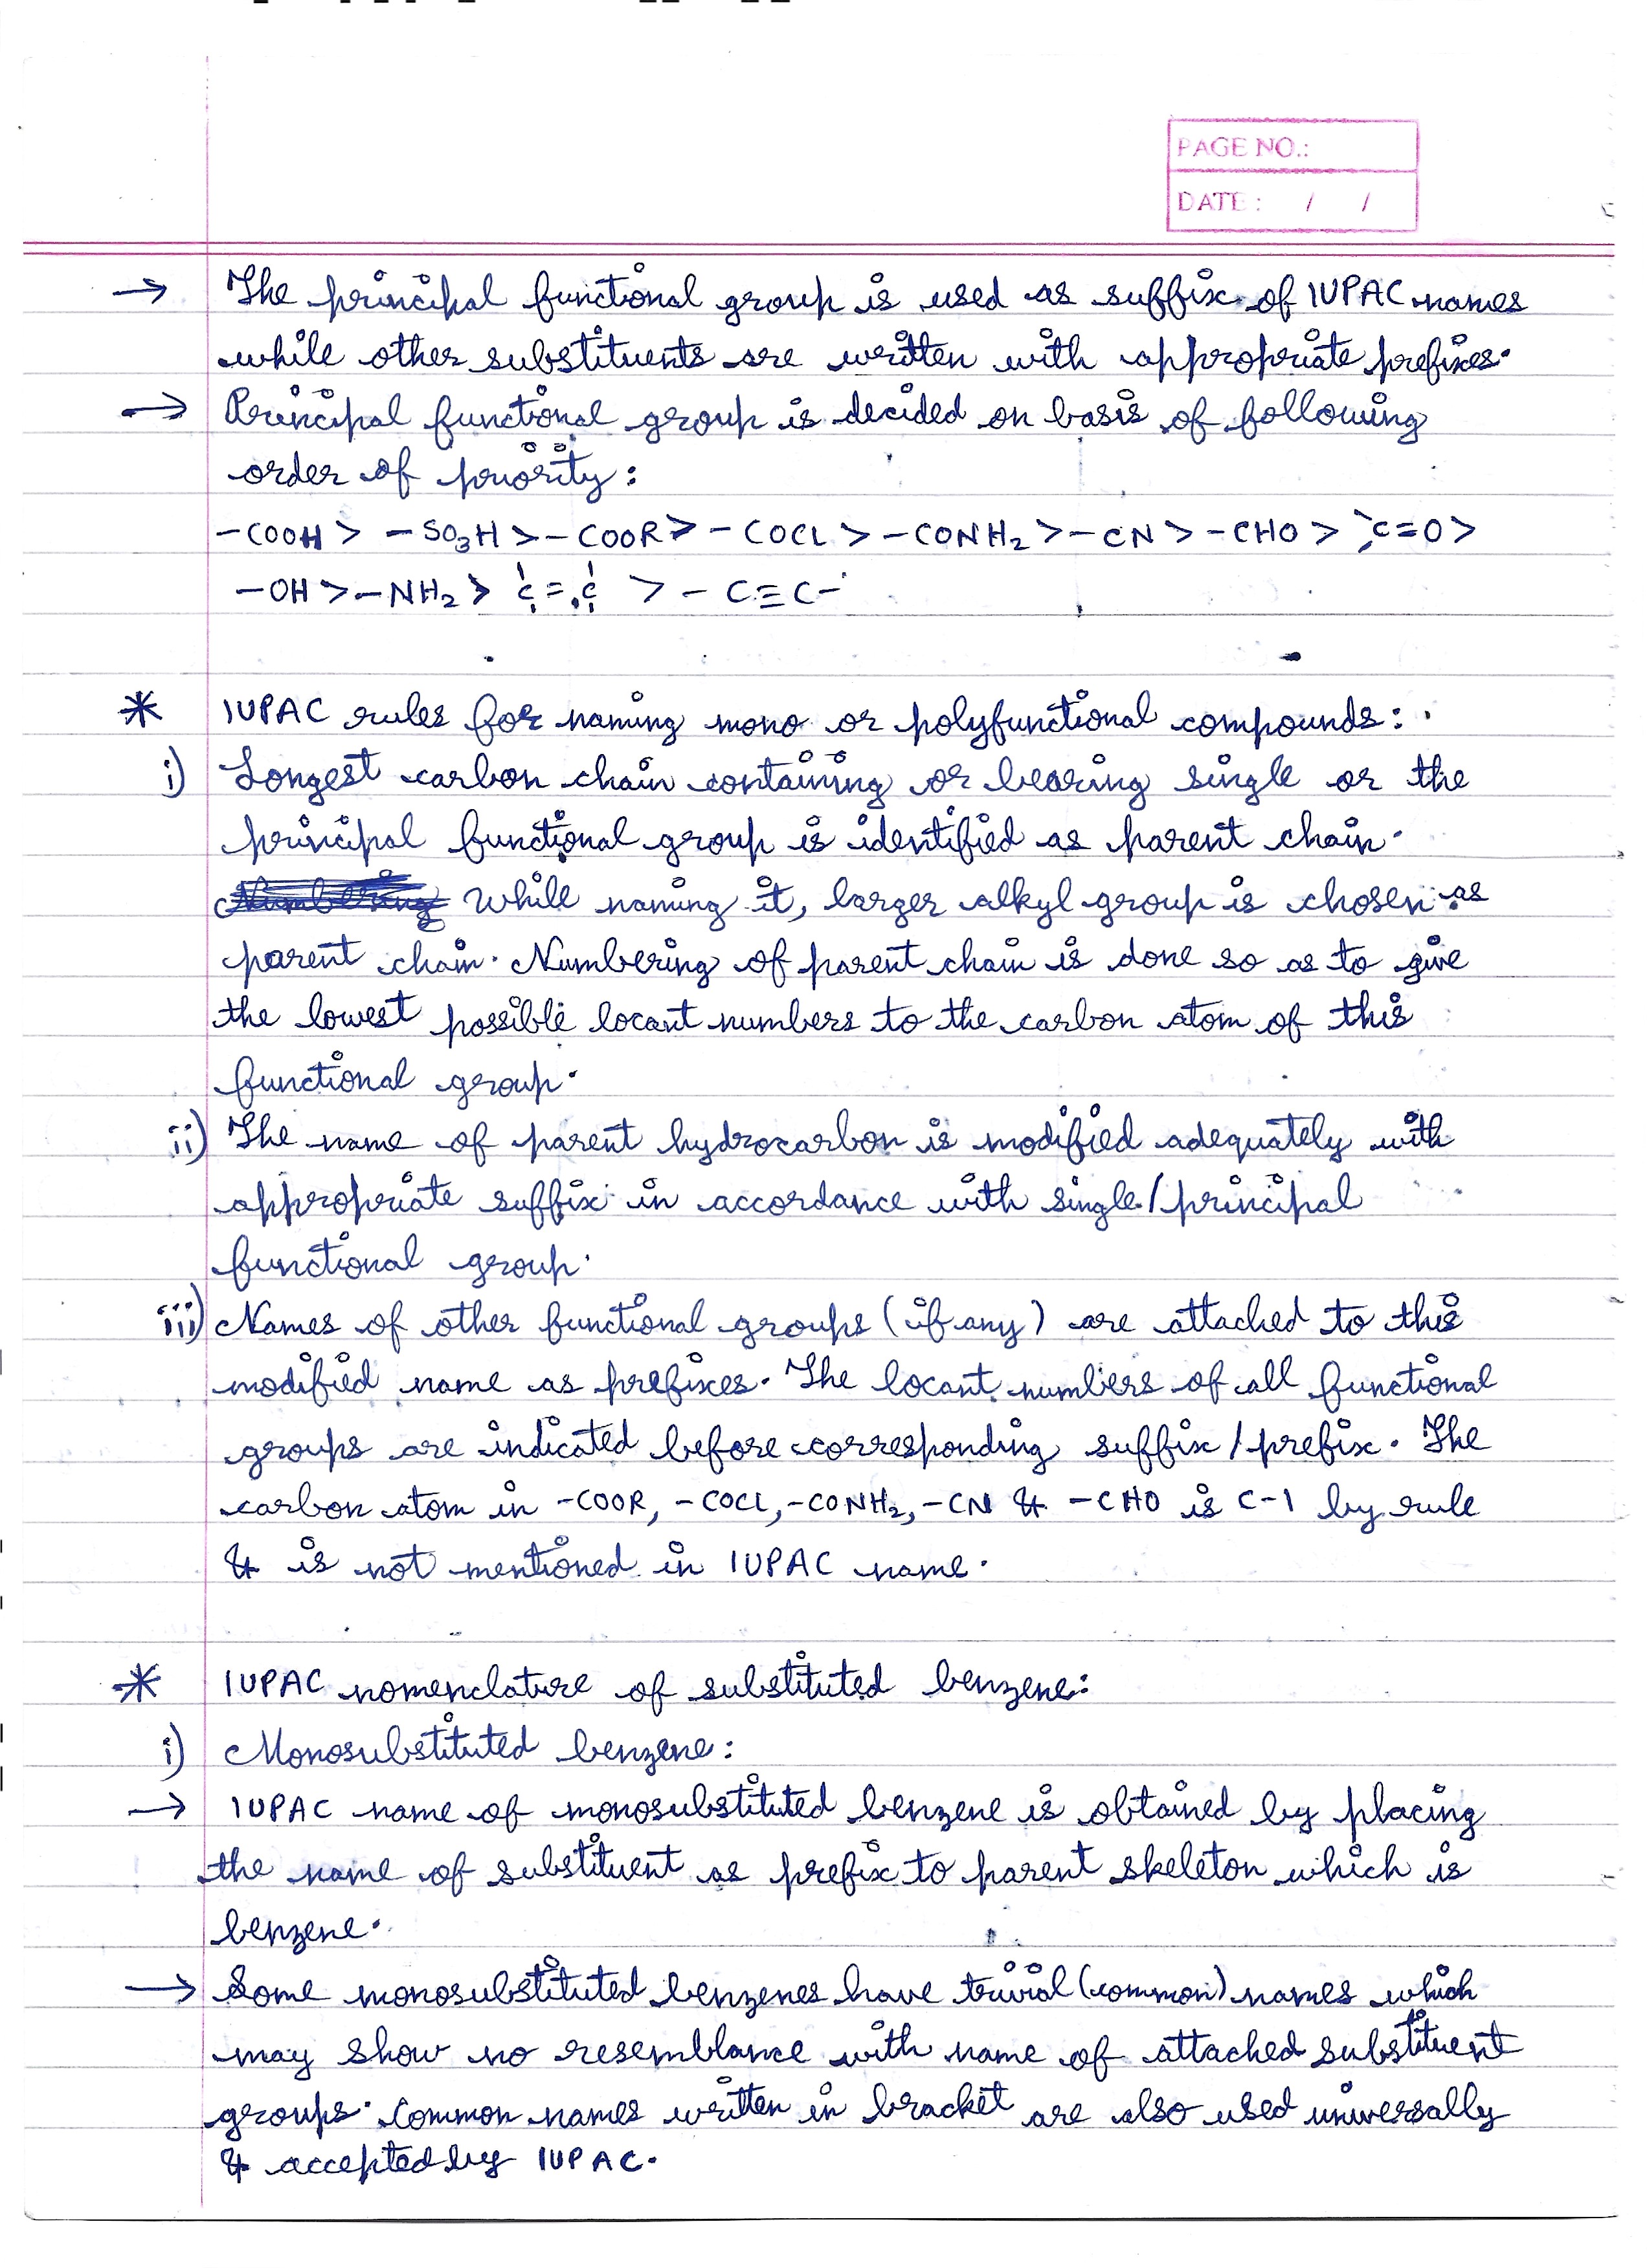 PAGE NO.:
DATE : / /
→ The principal functional group is used as suffix of IUPAC names
while other substituents are written with appropriate prefixes.
→ Principal functional group is decided on basis of following
order of priority:
-COOH > -SO₃H > -COOR > -COCl > -CONH₂ > -CN > -CHO > >C=O >
-OH > -NH₂ > C=C > -C≡C-
* IUPAC rules for naming mono or polyfunctional compounds:
i) Longest carbon chain containing or bearing single or the
principal functional group is identified as parent chain.
While naming it, larger alkyl group is chosen as
parent chain. Numbering of parent chain is done so as to give
the lowest possible locant numbers to the carbon atom of this
functional group.
ii) The name of parent hydrocarbon is modified adequately with
appropriate suffix in accordance with single/principal
functional group.
iii) Names of other functional groups (if any) are attached to this
modified name as prefixes. The locant numbers of all functional
groups are indicated before corresponding suffix/prefix. The
carbon atom in -COOR, -COCl, -CONH₂, -CN & -CHO is C-1 by rule
& is not mentioned in IUPAC name.
* IUPAC nomenclature of substituted benzene:
i) Monosubstituted benzene:
→ IUPAC name of monosubstituted benzene is obtained by placing
the name of substituent as prefix to parent skeleton which is
benzene.
→ Some monosubstituted benzenes have trivial (common) names which
may show no resemblance with name of attached substituent
groups. Common names written in bracket are also used universally
& accepted by IUPAC.